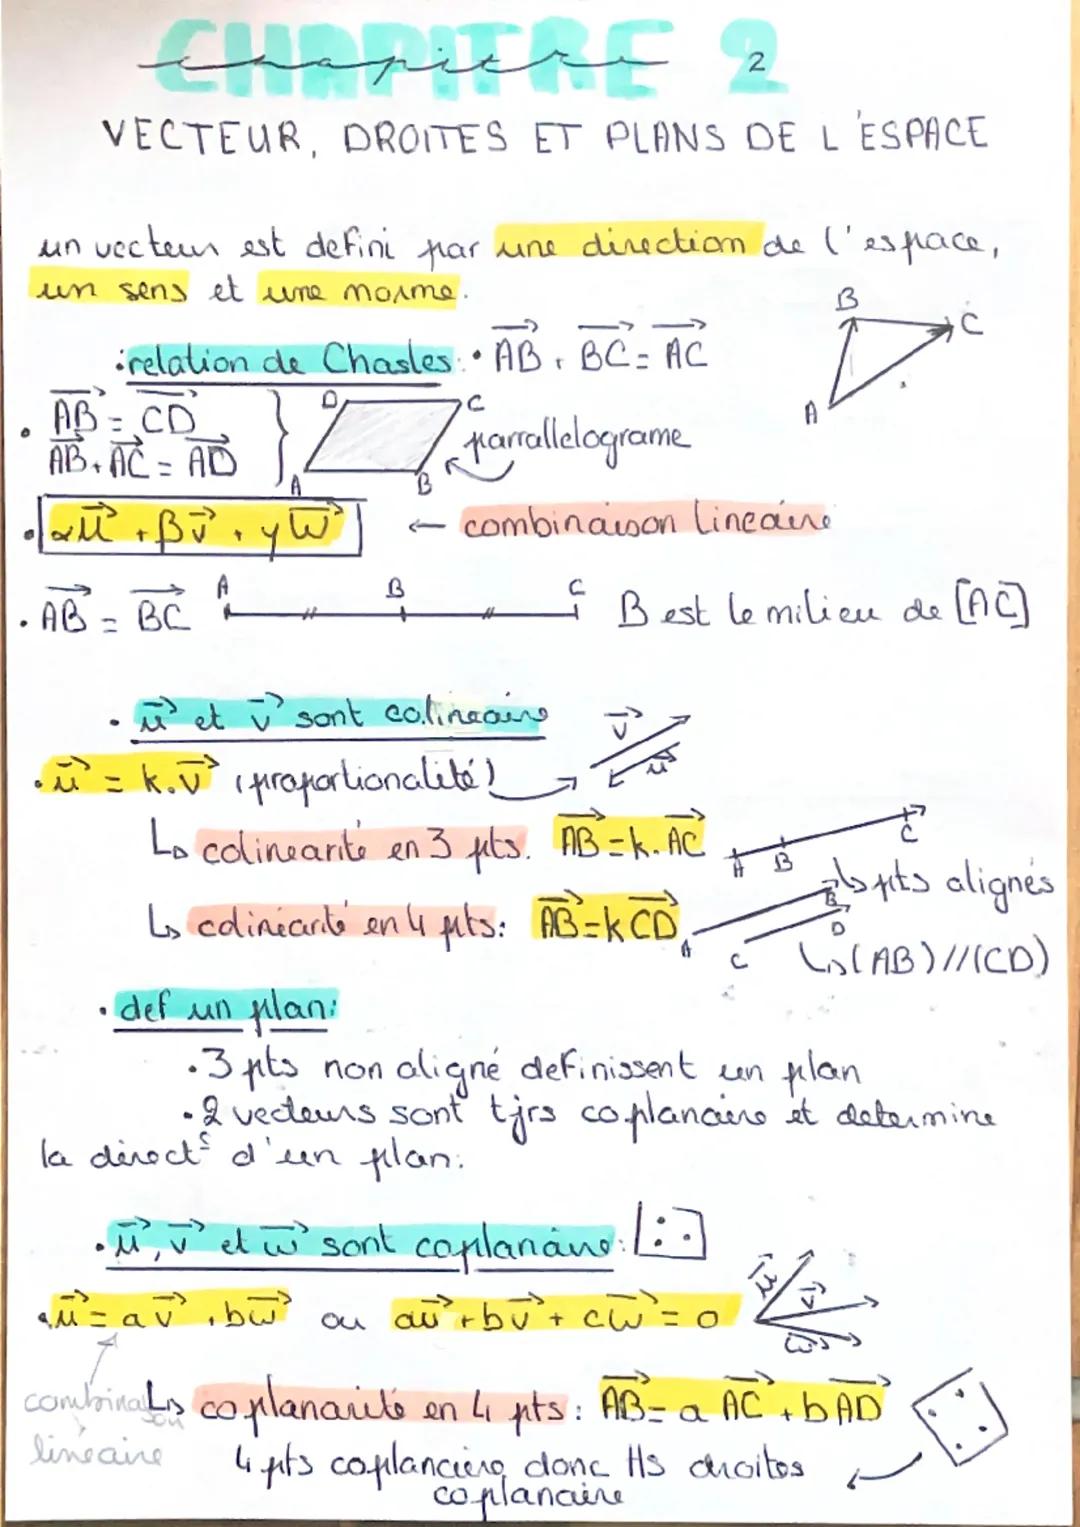 CHAPITRE 2
chapitre 2
VECTEUR, DROITES ET PLANS DE L'ESPACE
un vecteur est defini par une direction de l'espace,
un sens et une norme.
B
C
A
• relation de Chasles: • AB + BC = AC
• AB = CD
AB + AC = AD
D C
A B
parrallelograme
• αu + βv + γw ← combinaison lineaire
• AB = BC A B C B est le milieu de [AC]
• u et v sont colineaire
v
u
• u = k.v (proportionalité)
↳ colinearité en 3 pts. AB = k.AC
A B C
↳ pts alignés
↳ colinéarité en 4 pts: AB = k CD
A B
C D
↳ (AB)//(CD)
• def un plan:
• 3 pts non aligné definissent un plan
• 2 vecteurs sont tjrs coplanaire et determine
la directº d'un plan.
• u, v et w sont coplanaire:
• u = av + bw ou au + bv + cw = 0
u
v
w
combinaison
lineaire
↳ coplanarité en 4 pts: AB = a AC + b AD
4 pts coplanaire donc tts droites
coplanaire